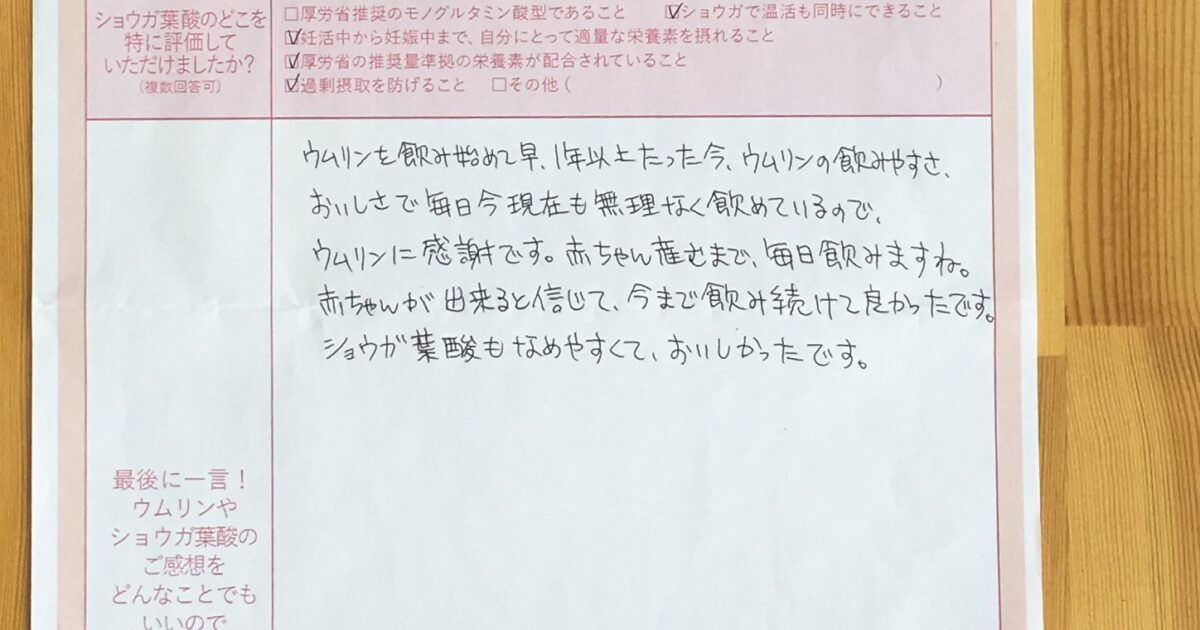 ショウガ葉酸のどこを
特に評価して
いただけましたか?
(複数回答可)
□厚労省推奨のモノグルタミン酸型であること ☑ショウガで温活も同時にできること
☑妊活中から妊娠中まで、自分にとって適量な栄養素を摂れること
☑厚労省の推奨量準拠の栄養素が配合されていること
☑過剰摂取を防げること □その他( )
ウムリンを飲み始めて早、1年以上たった今、ウムリンの飲みやすさ、
おいしさで毎日今現在も無理なく飲めているので、
ウムリンに感謝です。赤ちゃん産むまで、毎日飲みますね。
赤ちゃんが出来ると信じて、今まで飲み続けて良かったです。
ショウガ葉酸もなめやすくて、おいしかったです。
最後に一言!
ウムリンや
ショウガ葉酸の
ご感想を
どんなことでも
いいので